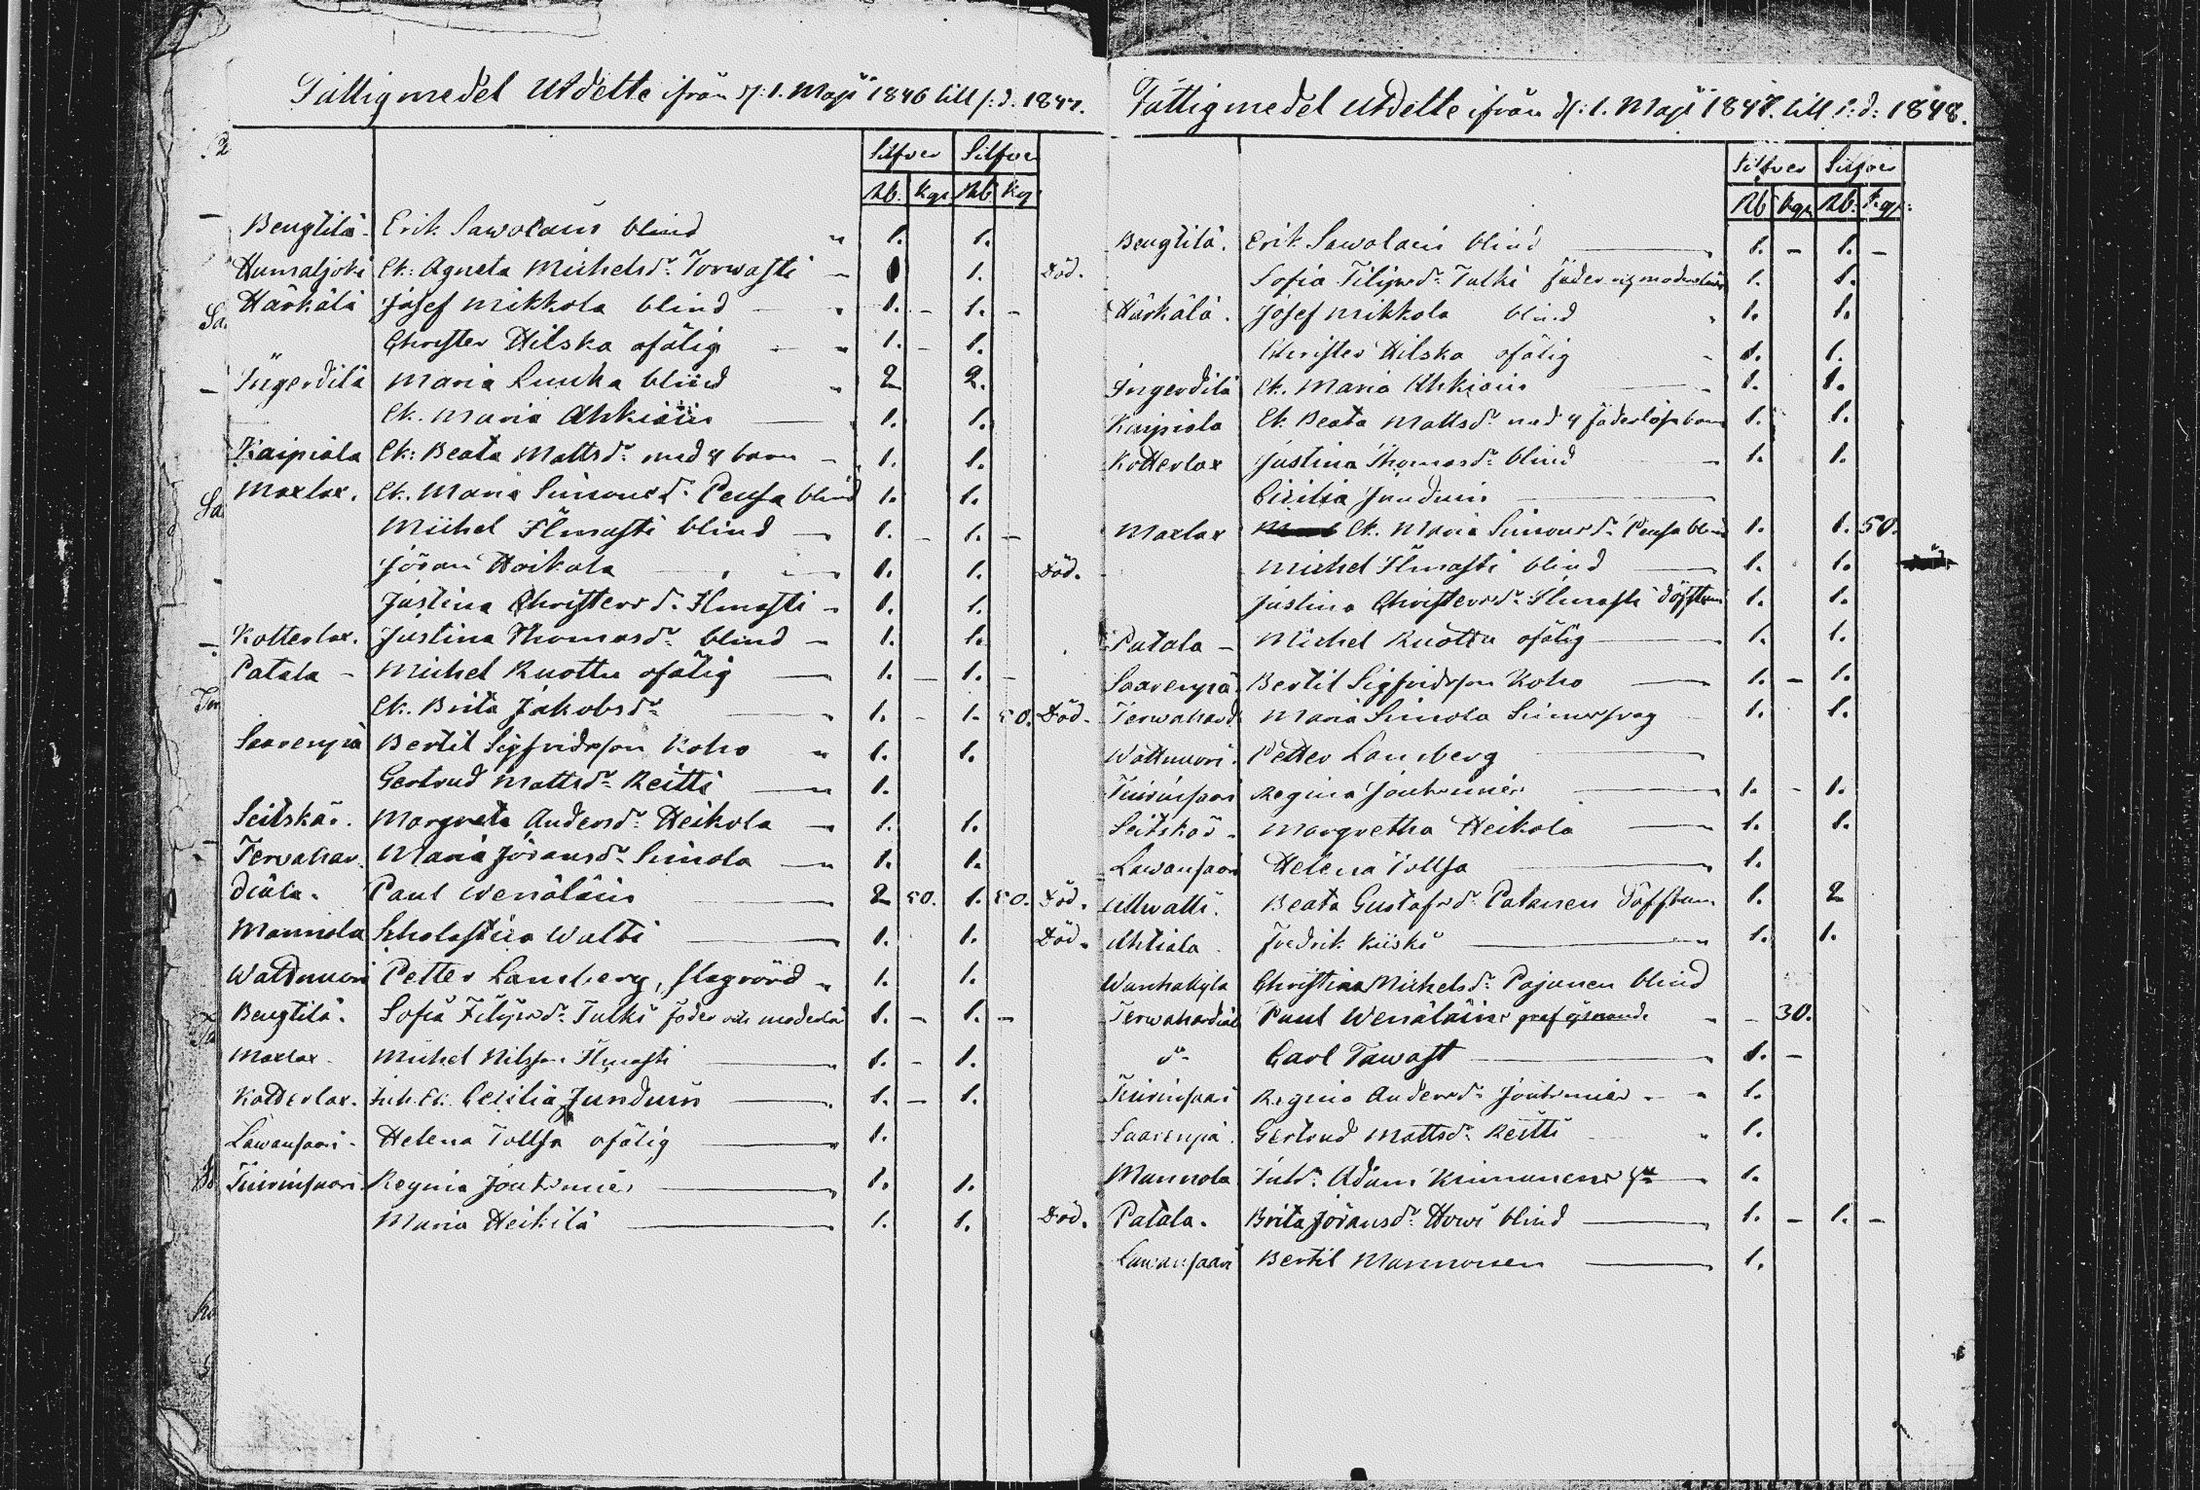 Fattigmedel Utdelte ifrån d: 1. Maji 1846 till s: d: 1847.
Silfver Silfver
Rb. Kop. Rb. Kop
Bengtilä. Erik Sawolain blind " 1. 1.
Humaljoki Ek: Agneta Michelsdr Torwasti 1 1. Död.
Härkälä Josef Mikkola blind 1. - 1. -
Christer Hilska ofälig 1. - 1.
Ingerdilä Maria Luuka blind 2 2.
Ek. Maria Ahkiain 1. 1.
Kaipiala Ek: Beata Mattsdr med 4 barn 1. 1.
Maxlax. Ek. Maria Simonsdr Peusa blind 1. 1.
Michel Ilmasti blind 1. - 1. -
Jöran Hoikala 1. 1. Död.
Justina Christersdr Ilmasti 1. 1.
Kotterlax. Justina Thomasdr blind 1. 1.
Patala - Michel Ruottu ofälig 1. - 1. -
Ek. Brita Jakobsdr 1. - 1. 50. Död.
Saarenpä Bertil Sigfridsson Koho " 1. 1.
Gertrud Mattsdr Reitti 1.
Seitskär. Margreta Andersdr Heikola 1. 1.
Tervahar. Maria Jöransdr Simola 1. 1.
diala. Paul Wenäläin 2 50. 1. 50. Död.
Mannola Scholastica Walti 1. 1. Död.
Wattnuori Petter Lansberg, slagrörd 1. 1.
Bengtilä. Sofia Filipsdr Tulki fader och moderlös 1. - 1. -
Maxlax. Michel Nilsson Ilmasti 1. - 1.
Kotterlax. Inh. Ek. Cecilia Junduin 1. - 1.
Lawansaari. Helena Tollsa ofälig 1.
Tiurinsaari. Regina Joutsimier 1. 1.
Maria Heikilä 1. 1. Död.
Fattigmedel Utdelte ifrån d: 1. Maji 1847. till s: d: 1848.
Silfver Silfver
Rb Kop Rb. Kop.
Bengtilä. Erik Sawolain blind 1. - 1. -
Sofia Filipsdr Tulki fader og moderlös 1. 1.
Härkälä. Josef Mikkola blind 1. 1.
Christer Hilska ofälig 1. 1.
Ingerdilä Ek. Maria Ahkiain 1. 1.
Kaipiala Ek Beata Mattsdr med 4 faderlösa barn 1. 1.
Kotterlax Justina Thomasdr blind 1. 1.
Cicilia Junduin
Maxlax Ek. Maria Simonsdr Peusa blind 1. 1. 50.
Michel Ilmasti blind 1. 1.
Justina Christersdr Ilmasti 1. 1.
Patala - Michel Ruottu ofälig 1. 1.
Saarenpä Bertil Sigfridsson Koho 1. - 1.
Terwahard. Maria Simola 1. 1.
Wattnuori. Petter Lansberg
Tiurinsaari Regina Joutsimier 1. - 1.
Seitskär. Margretha Heikola 1. 1.
Lawansaari Helena Tollsa 1.
Beata Gustafsdr Patanen 1. 2
Ahtiala Fredrik Kiiski 1. 1.
Wanhakyla Christina Michelsdr Pajanen blind
Terwahardiala Paul Wenäläin - 30.
do Carl Tawast 1. -
Tiurinsaari Regina Andersdr Joutsimier 1.
Saarenpä. Gertrud Mattsdr Reitti 1.
Mannola Adam Kinnunens 1.
Patala. Brita Jöransdr Howi blind 1. - 1. -
Lawansaari Bertil Mannonen 1.